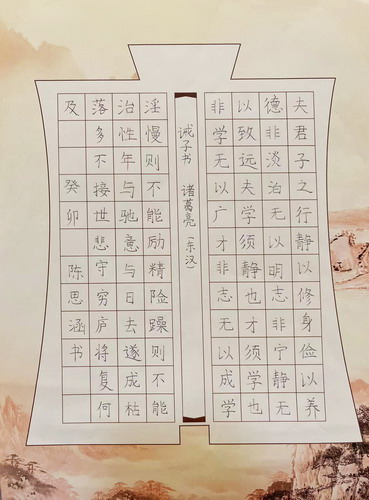 夫君子之行静以修身俭以养
德非淡泊无以明志非宁静无
以致远夫学须静也才须学也
非学无以广才非志无以成学
诫子书 诸葛亮（东汉）
淫慢则不能励精险躁则不能
治性年与驰意与日去遂成枯
落多不接世悲守穷庐将复何
及 癸卯 陈思涵书